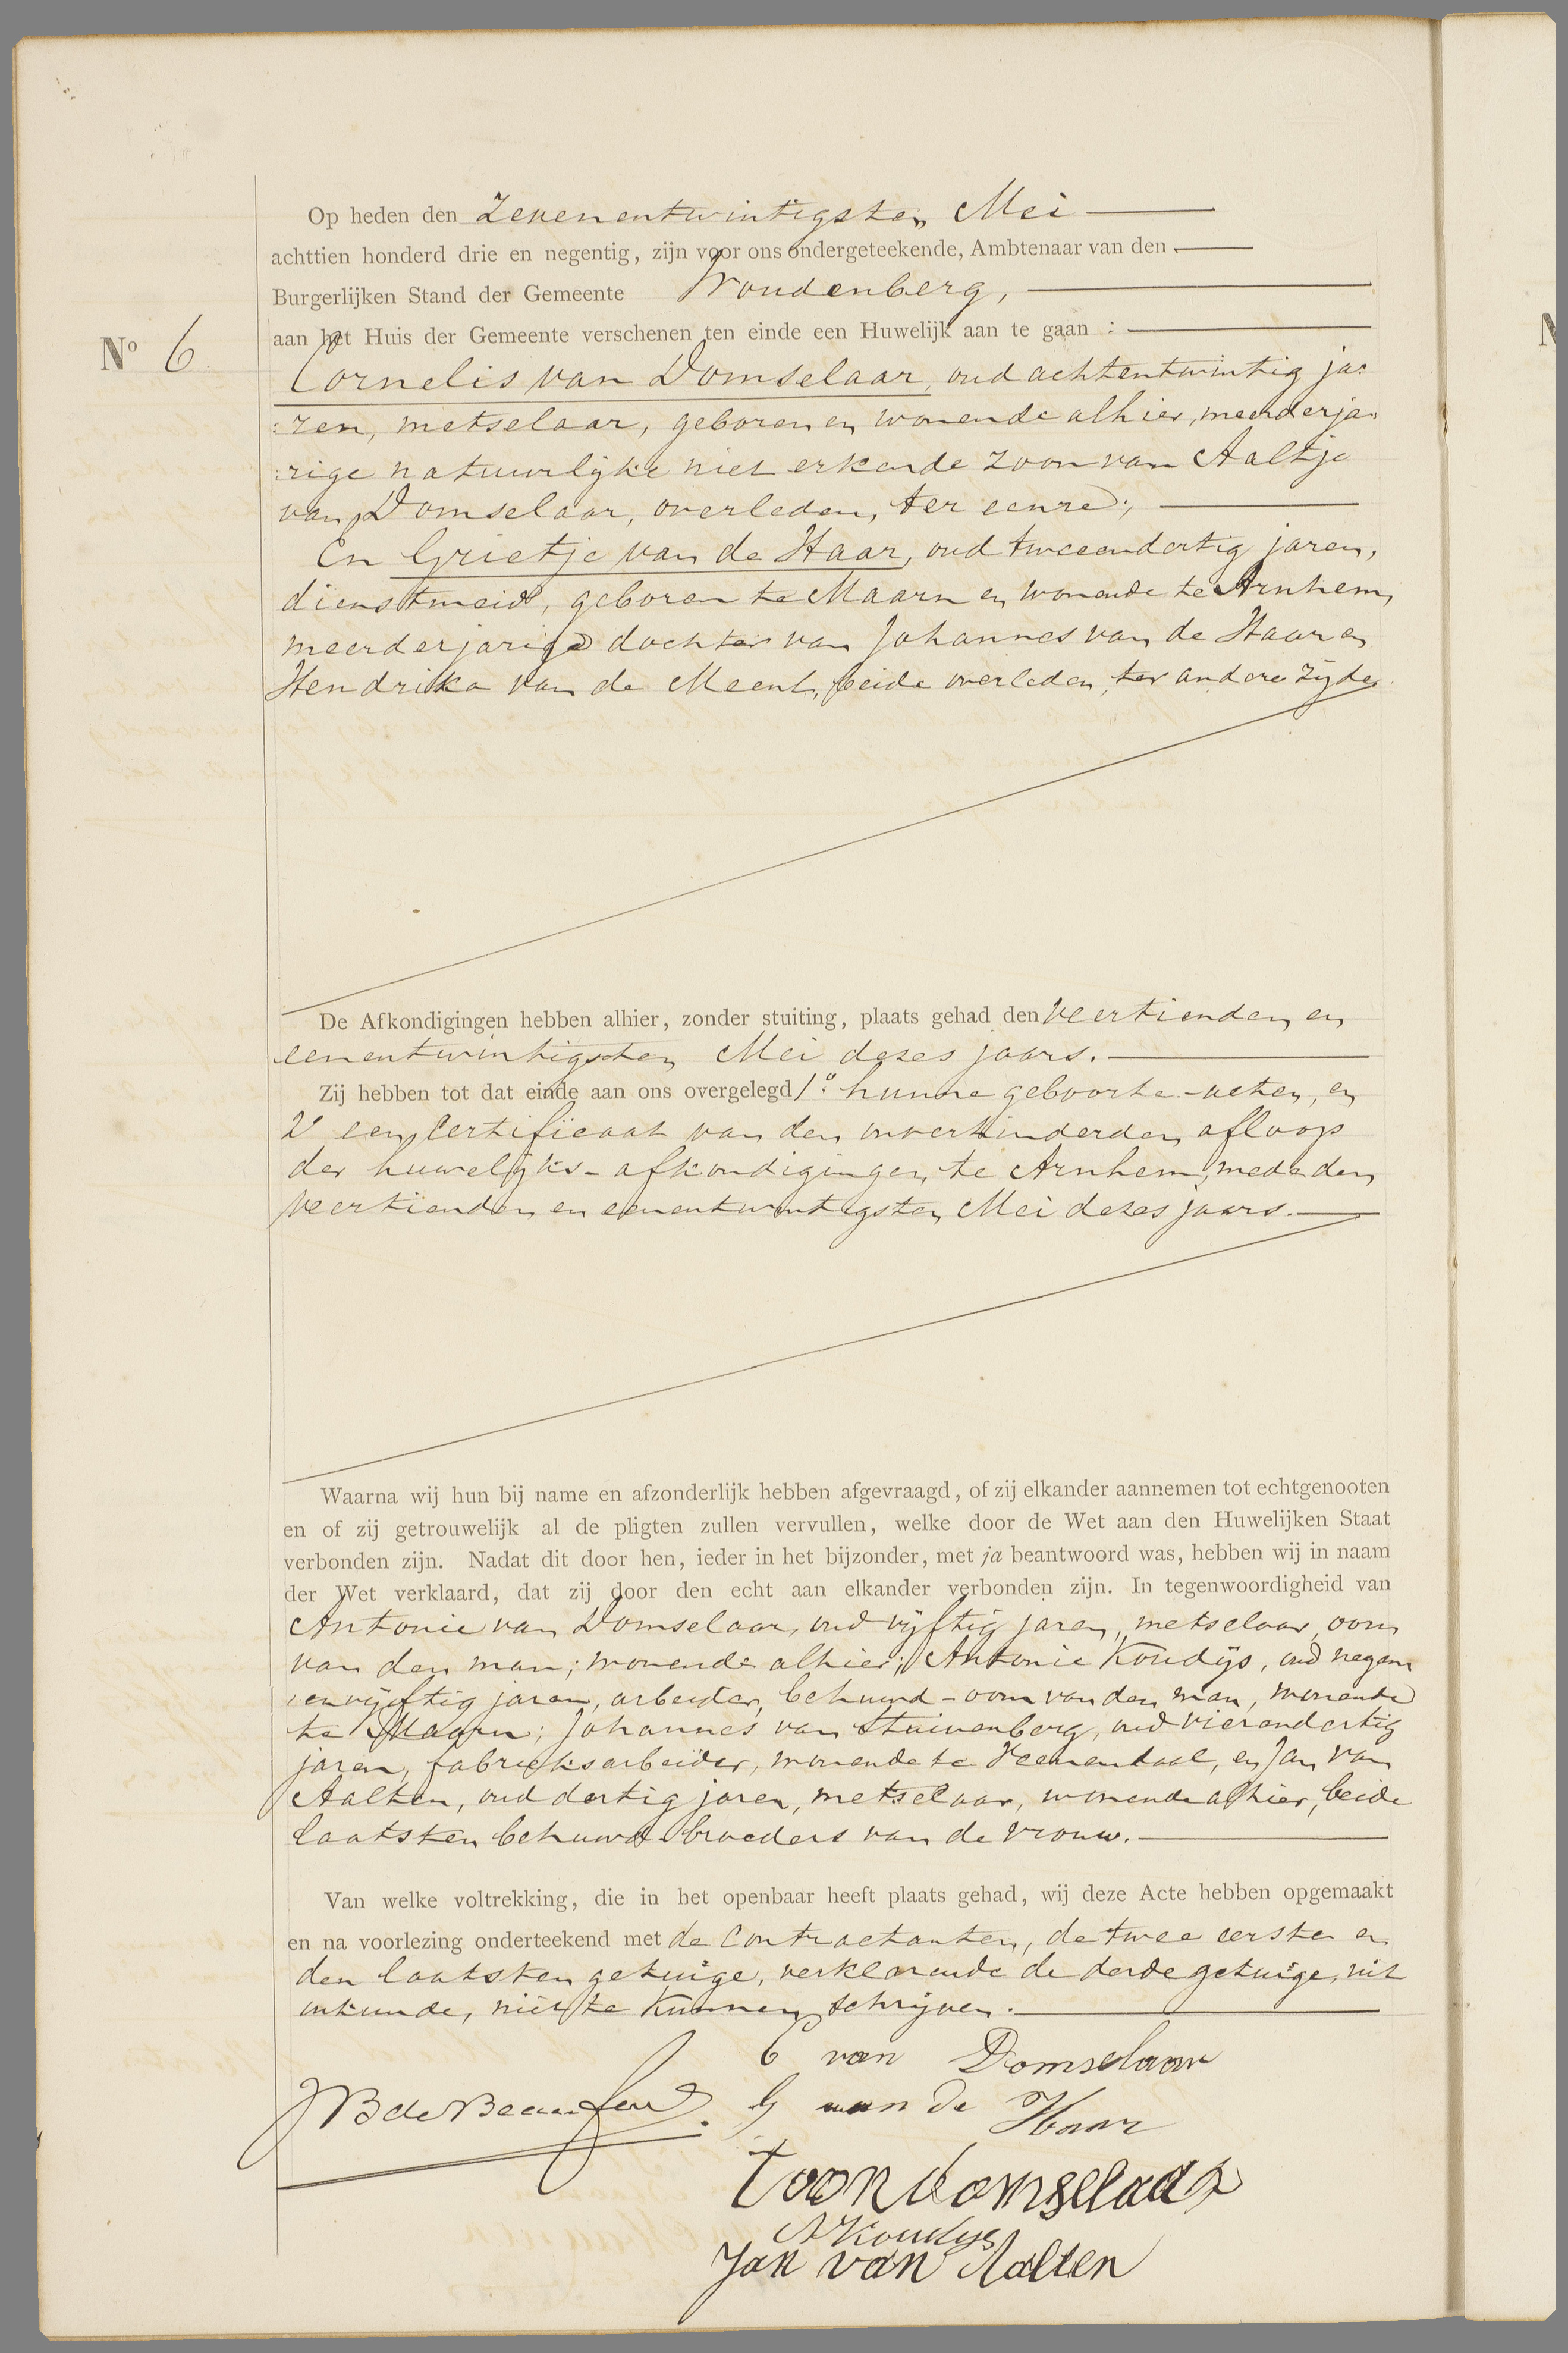 Op heden den zevenentwintigsten Mei
achttien honderd drie en negentig, zijn voor ons ondergeteekende, Ambtenaar van den
Burgerlijken Stand der Gemeente Woudenberg,
aan het Huis der Gemeente verschenen ten einde een Huwelijk aan te gaan :
No 6.
Cornelis van Domselaar, oud achtentwintig ja:
:ren, metselaar, geboren en wonende alhier, meerderja:
:rige natuurlijke niet erkende zoon van Aaltje
van Domselaar, overleden, ter eenre;
En Grietje van de Haar, oud tweeendertig jaren,
dienstmeid, geboren te Maarn en wonende te Arnhem,
meerderjarige dochter van Johannes van de Haar en
Hendrika van de Meent, beide overleden, ter andere zijde.
De Afkondigingen hebben alhier, zonder stuiting, plaats gehad den veertienden en
eenentwintigsten Mei dezes jaars.
Zij hebben tot dat einde aan ons overgelegd 1o. hunne geboorte-acten, en
2o een Certificaat van den onverhinderden afloop
der huwelijks-afkondigingen te Arnhem, mede den
veertienden en eenentwintigsten Mei dezes jaars.
Waarna wij hun bij name en afzonderlijk hebben afgevraagd, of zij elkander aannemen tot echtgenooten
en of zij getrouwelijk al de pligten zullen vervullen, welke door de Wet aan den Huwelijken Staat
verbonden zijn. Nadat dit door hen, ieder in het bijzonder, met ja beantwoord was, hebben wij in naam
der Wet verklaard, dat zij door den echt aan elkander verbonden zijn. In tegenwoordigheid van
Antonie van Domselaar, oud vijftig jaren, metselaar, oom
van den man; wonende alhier; Antonie Koudijs, oud negen
envijftig jaren, arbeider, behuwd-oom van den man, wonende
te Maarn; Johannes van Stuivenberg, oud vierendertig
jaren, fabrieksarbeider, wonende te Veenendaal, en Jan van
Aalten, oud dertig jaren, metselaar, wonende alhier, beide
laatsten behuwd-broeders van de vrouw.
Van welke voltrekking, die in het openbaar heeft plaats gehad, wij deze Acte hebben opgemaakt
en na voorlezing onderteekend met de Contractanten, de twee eerste en
den laatsten getuige, verklarende de derde getuige, uit
onkunde, niet te kunnen schrijven.
C van Domselaar
JB de Beaufort G van de Haar
Toon domselaar
A Koudijs
Jan van Aalten